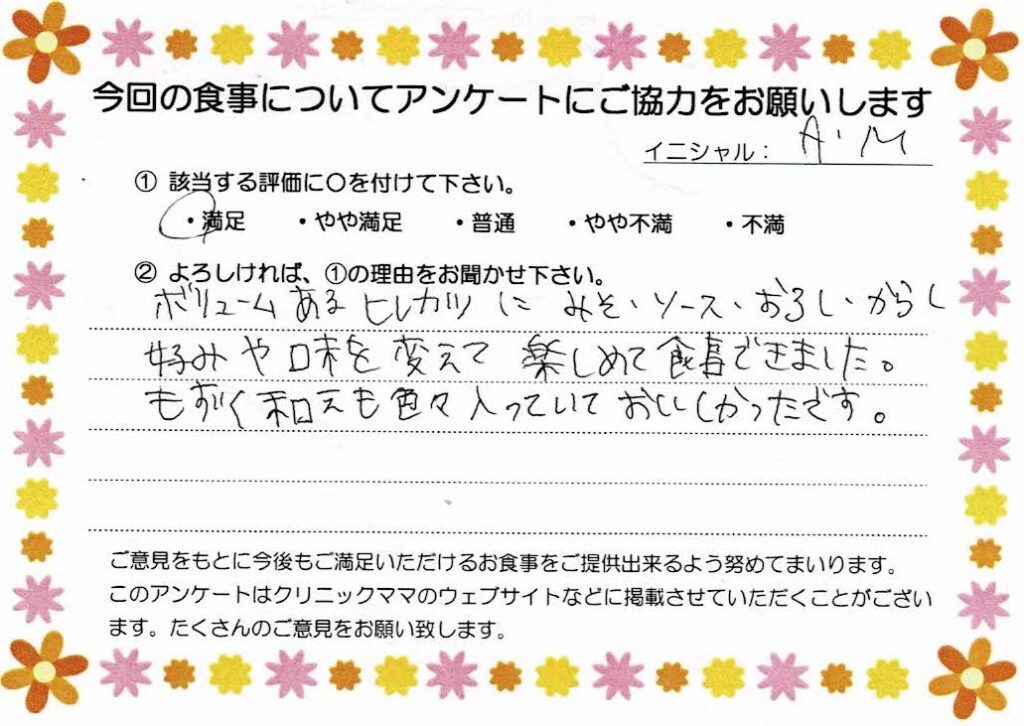 今回の食事についてアンケートにご協力をお願いします
イニシャル： A・M
① 該当する評価に〇を付けて下さい。
・満足 ・やや満足 ・普通 ・やや不満 ・不満
② よろしければ、①の理由をお聞かせ下さい。
ボリュームあるヒレカツに みそ・ソース・おろし・からし
好みや味を変えて 楽しめて食事できました。
もずく和えも色々入っていて おいしかったです。
ご意見をもとに今後もご満足いただけるお食事をご提供出来るよう努めてまいります。
このアンケートはクリニックママのウェブサイトなどに掲載させていただくことがござい
ます。たくさんのご意見をお願い致します。